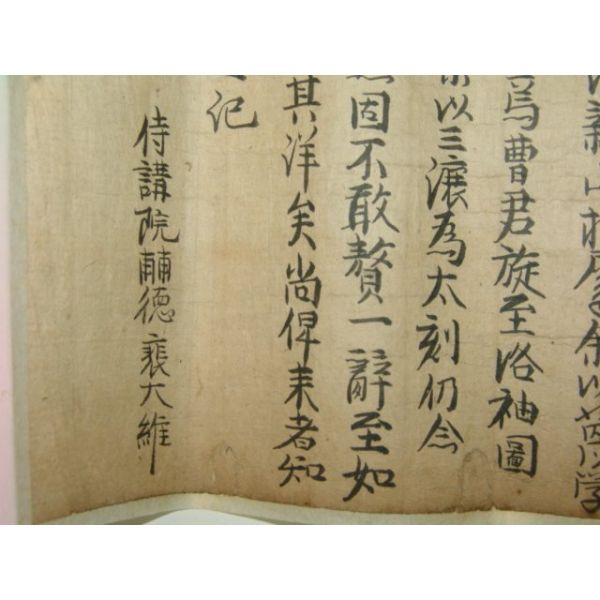 山
焉曹君旋至洛袖圖
以三瀼為太刻仍念
固不敢贅一辭至如
其洋矣尚俾来者知
记
侍講院輔德裵大維